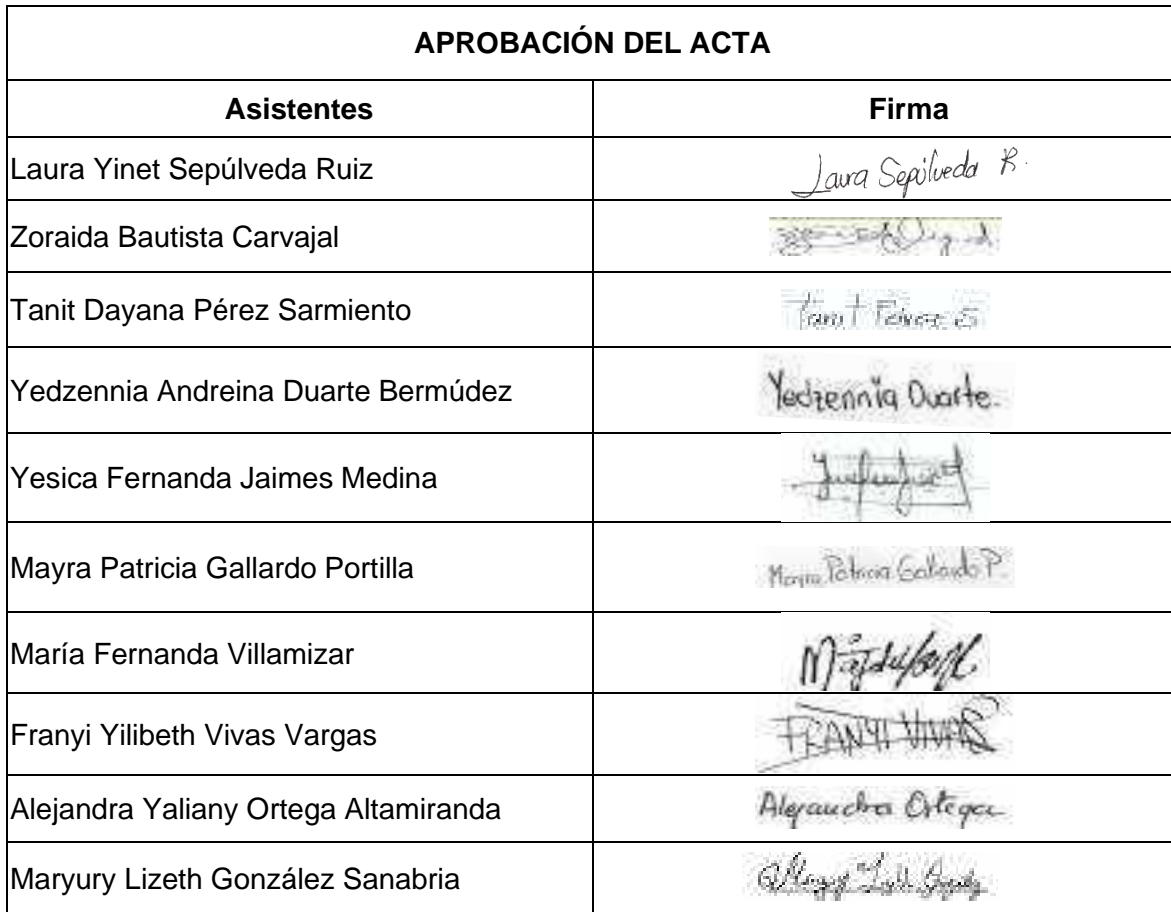 APROBACIÓN DEL ACTA
Asistentes Firma
Laura Yinet Sepúlveda Ruiz Laura Sepúlveda R.
Zoraida Bautista Carvajal
Tanit Dayana Pérez Sarmiento Tanit Pérez S
Yedzennia Andreina Duarte Bermúdez Yedzennia Duarte.
Yesica Fernanda Jaimes Medina
Mayra Patricia Gallardo Portilla Mayra Patricia Gallardo P.
María Fernanda Villamizar
Franyi Yilibeth Vivas Vargas FRANYI VIVAS
Alejandra Yaliany Ortega Altamiranda Alejandra Ortega
Maryury Lizeth González Sanabria